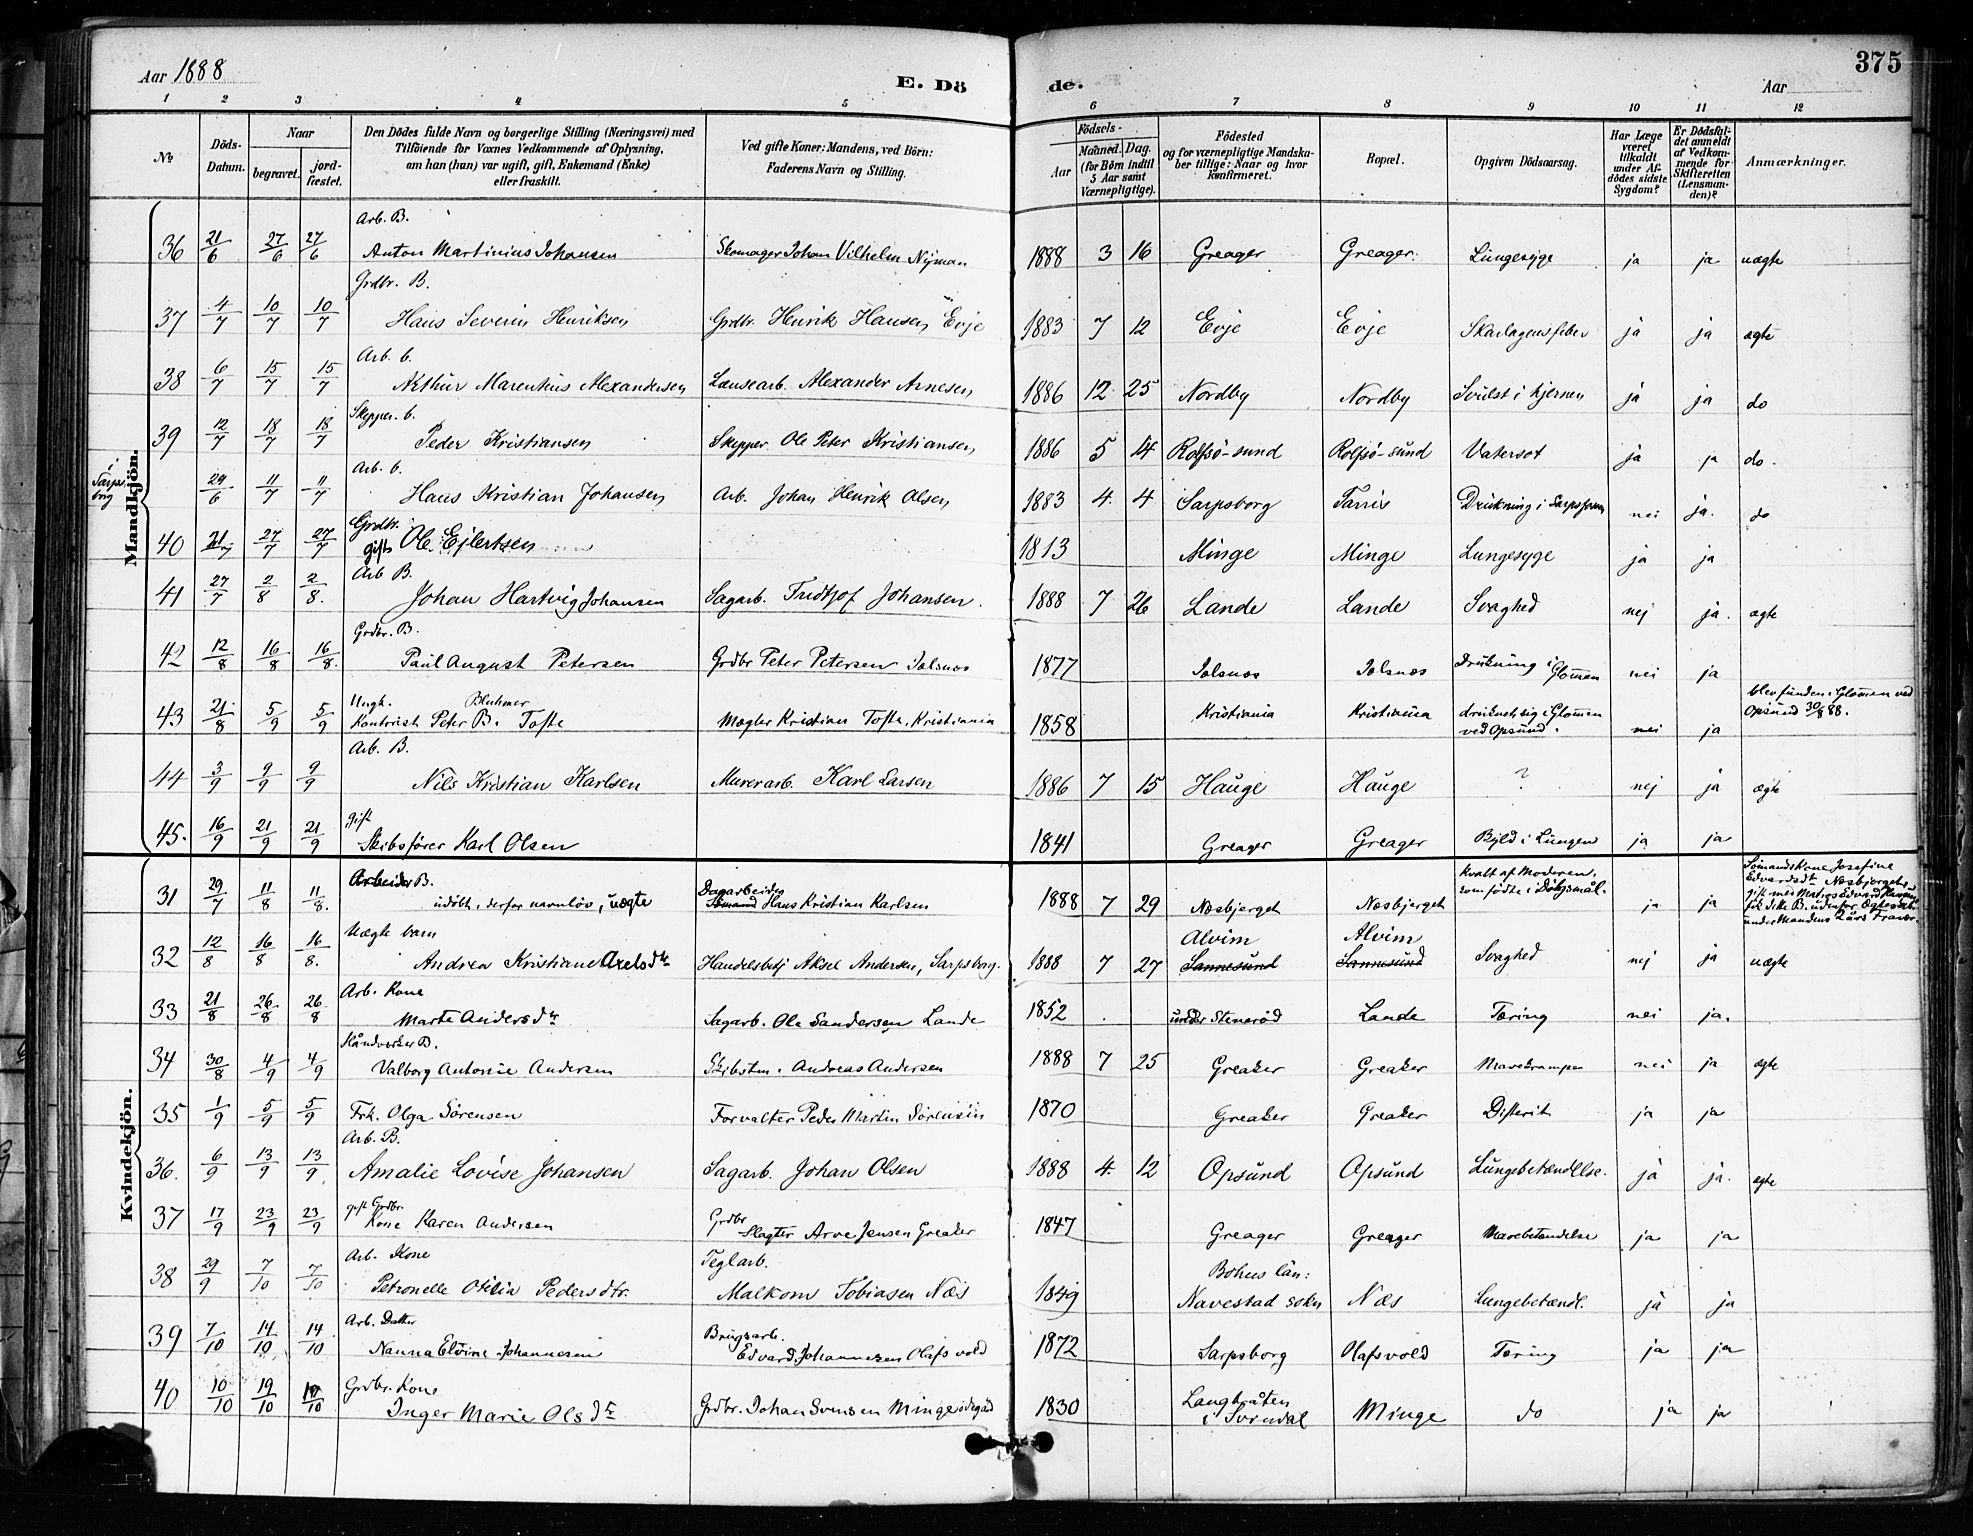 Aar 1888
E. Dö
de.
Aar
375
1 2 3 4 5 6 7 8 9 10 11 12
№
Döds-Datum.
Naar
begravet.
jord-fæstet.
Den Dödes fulde Navn og borgerlige Stilling (Næringsvei) med
Tilföiende for Voxnes Vedkommende af Oplysning,
om han (hun) var ugift, gift, Enkemand (Enke)
eller fraskilt.
Ved gifte Koner: Mandens, ved Börn:
Faderens Navn og Stilling.
Födsels-
Aar
Maaned. Dag.
(for Börn indtil
5 Aar samt
Værnepligtige).
Födested
og for værnepligtige Mandska-
ber tillige: Naar og hvor
konfirmeret.
Bopæl.
Opgiven Dödsaarsag.
Har Læge
været
tilkaldt
under Af-
dödes sidste
Sygdom?
Er Dödsfal-
det anmeldt
af Vedkom-
mende for
Skifteretten
(Lensman-
den)?
Anmærkninger.
Mandkjön.
Arb. B.
36 21/6 27/6 27/6 Anton Martinius Johansen Skomager Johan Vilhelm Nyman 1888 3 16 Greager Greager Lungesyge ja ja uægte
Grdbr. B.
37 4/7 10/7 10/7 Hans Severin Henriksen Grdbr. Henrik Hansen Evje 1883 7 12 Evje Evje Skarlagensfeber ja ja ægte
Arb. b.
38 6/7 15/7 15/7 Arthur Marentius Alexandersen Lænsearb. Alexander Arnesen 1886 12 25 Nordby Nordby Svulst i hjernen ja ja do
Skipper. b.
39 12/7 18/7 18/7 Peder Kristiansen Skipper Ole Peter Kristiansen 1886 5 14 Rolfsö-sund Rolfsö-sund Vatersot ja ja do.
Arb. b.
i Sarpsborg 29/6 11/7 11/7 Hans Kristian Johansen Arb. Johan Henrik Olsen 1883 4 4 Sarpsborg Tarris Drukning i Sarpsfossen nei ja. do
Grdbr.
40 21/7 27/7 27/7 gift Ole Ejlertsen 1813 Minge Minge Lungesyge ja ja
Arb B.
41 27/7 2/8 2/8. Johan Hartvig Johansen Sagarb. Fridtjof Johansen. 1888 7 26 Lande Lande Svaghed nej ja. ægte
Grdbr. B.
42 12/8 16/8 16/8. Paul August Petersen Grdbr Peter Petersen Jolsnæs 1877 Jolsnæs Jolsnæs Drukning i Glommen nei ja
Ungk. Bluhmer
43 21/8 5/9 5/9 Kontorist Peter B. Tofte Mægler Kristian Tofte, Kristiania 1858 Kristiania Kristiania druknet sig i Glommen ved Opsund. nei ja blev funden i Glommen ved Opsund 30/8 88.
Arb. B.
44 3/9 9/9 9/9 Nils Kristian Karlsen Murerarb. Karl Larsen 1886 7 15 Hauge Hauge ? nej ja ægte
gift
45. 16/9 21/9 21/9 Skibsfører Karl Olsen 1841 Greager Greager Byld i Lungen ja ja
Kvindekjön.
Arbeider B.
31 29/7 11/8 11/8. udöbt, derfor navnløs, uægte Dagarbeider Sømand Hans Kristian Karlsen 1888 7 29 Næsbjerget Næsbjerget kvalt af Moderen, som fødte i Dølgsmål. ja ja Sømandskone Josefine Edvardsdtr Næsbjerget, gift med Matros Edvard fik dette B. udenfor Ægteskab under Mandens 2 års Fravær.
Uægte barn
32 12/8 16/8 16/8. Andrea Kristiane Axelsdtr Handelsbetj Aksel Andersen, Sarpsborg. 1888 7 27 Alvim Sannesund Alvim Sannesund Svaghed nej ja uægte
Arb. Kone
33 21/8 26/8 26/8 Marte Andersdtr Sagarb. Ole Sandersen Lande 1852 under Stenerød Lande Tæring nei ja.
Håndværker B.
34 30/8 4/9 4/9 Valborg Antonie Andersen Skibstm. Andreas Andersen 1888 7 25 Greaker Greaker Mavekrampe nei ja ægte
35 1/9 5/9 5/9 Frk. Olga Sörensen Forvalter Peder Martin Sörensen 1870 Greaker Greaker Difterit ja ja
Arb. B.
36. 6/9 13/9 13/9 Amalie Lovise Johansen Sagarb. Johan Olsen 1888 4 12 Opsund Opsund Lungebetændelse. ja ja. ægte
gift Grdbr.
37 17/9 23/9 23/9 Kone Karen Andersen Grdbr Slagter Arve Jensen Greaker 1847 Greager Greager Mavebetændelse ja ja
Arb. Kone
38 29/9 7/10 7/10 Petronelle Otilia Pedersdtr. Teglarb. Malkom Tobiasen Næs 1849 Bohus län: Navestad sokn Næs Lungebetændl. ja ja
Arb. Datter
39 7/10 14/10 14/10 Nanna Elvine Johannesen Brugsarb. Edvard Johannesen Olafsvold 1872 Sarpsborg Olafsvold Tæring ja ja
Grdbr. Kone
40 10/10 19/10 19/10 Inger Marie Olsdtr Grdbr. Johan Svensen Minge ödegåd 1830 Langbråten i Svindal Minge do ja ja